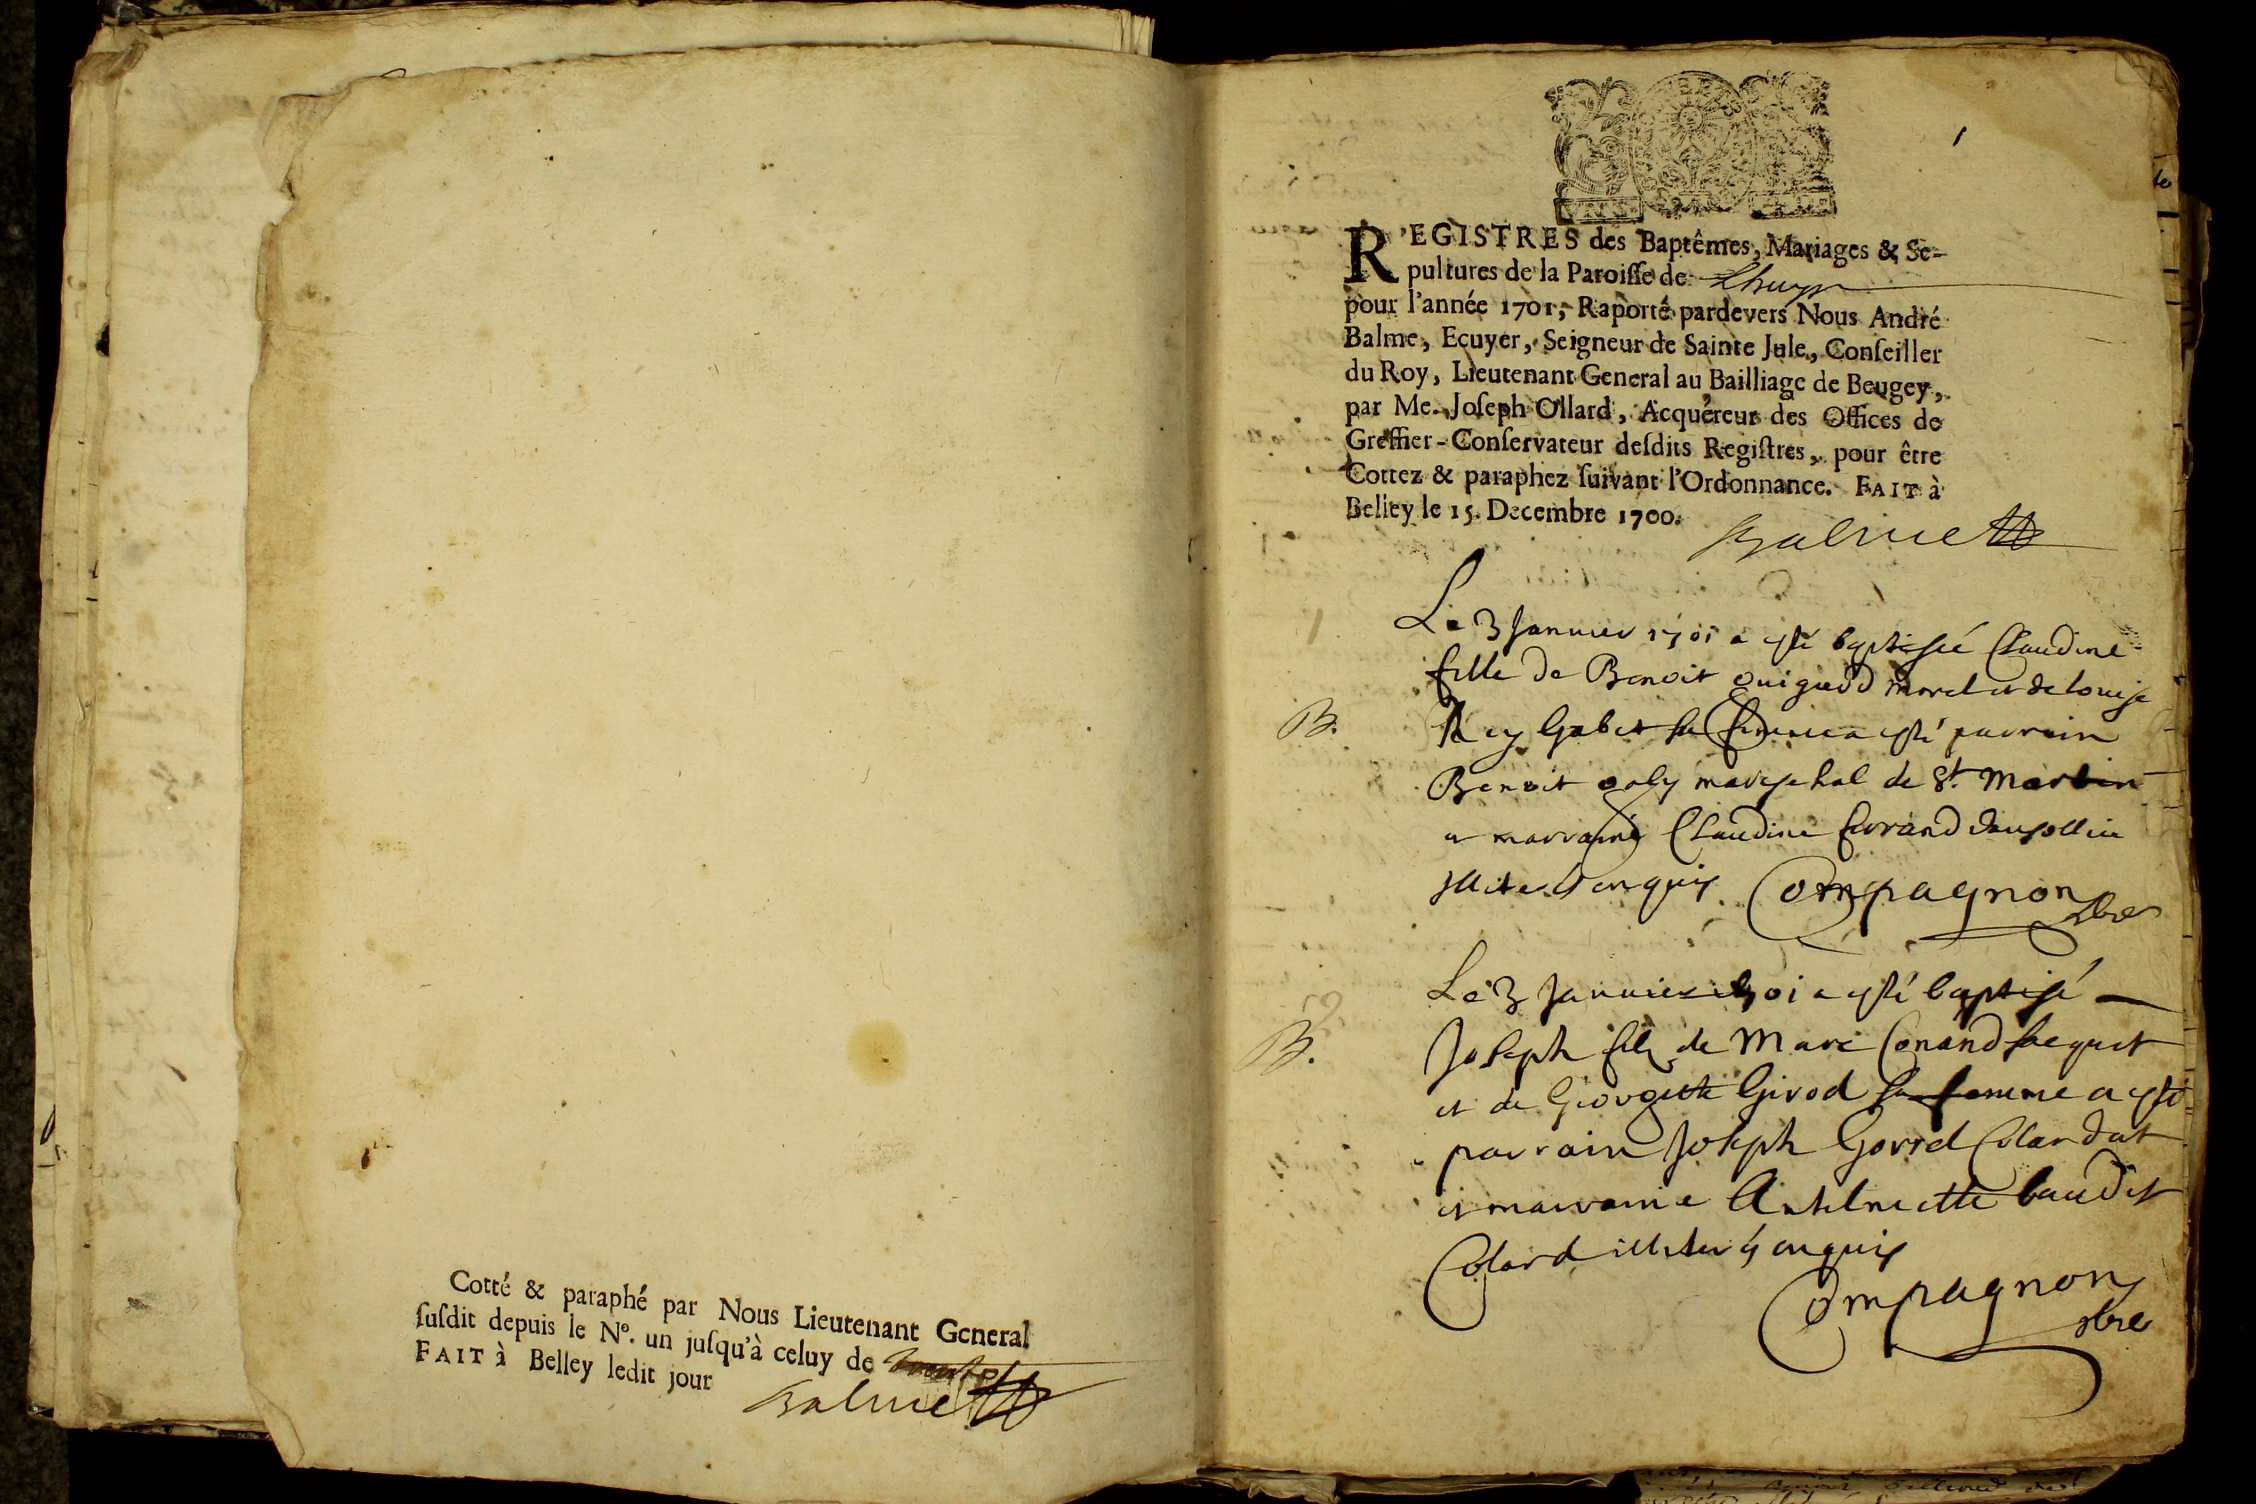 Cotté & paraphé par Nous Lieutenant General
ſuſdit depuis le N°. un juſqu'à celuy de
FAIT à Belley ledit jour
Balme
1
REGISTRES des Baptêmes, Mariages & Se-
pultures de la Paroiſſe de Lhuys
pour l'année 1701, Raporté pardevers Nous André
Balme, Ecuyer, Seigneur de Sainte Jule, Conſeiller
du Roy, Lieutenant General au Bailliage de Beugey,
par Me. Joſeph Ollard, Acquereur des Offices de
Greffier-Conſervateur deſdits Regiſtres, pour être
Cottez & paraphez ſuivant l'Ordonnance. FAIT à
Belley le 15. Decembre 1700.
Balme
Le 3 Janvier 1701 a esté baptisée Claudine
fille de Benoit morel et de Louise
B.
Rey Gabet sa femme a esté parrain
Benoit mareschal de St. Martin
et marraine Claudine
enquis Compagnon
Le 3 Janvier 1701 a esté baptisé
B.
Joseph fils de Marc Conand Jacquet
et de Georgette Girod sa femme a esté
parrain Joseph
et marraine baudet
Colard enquis
Compagnon